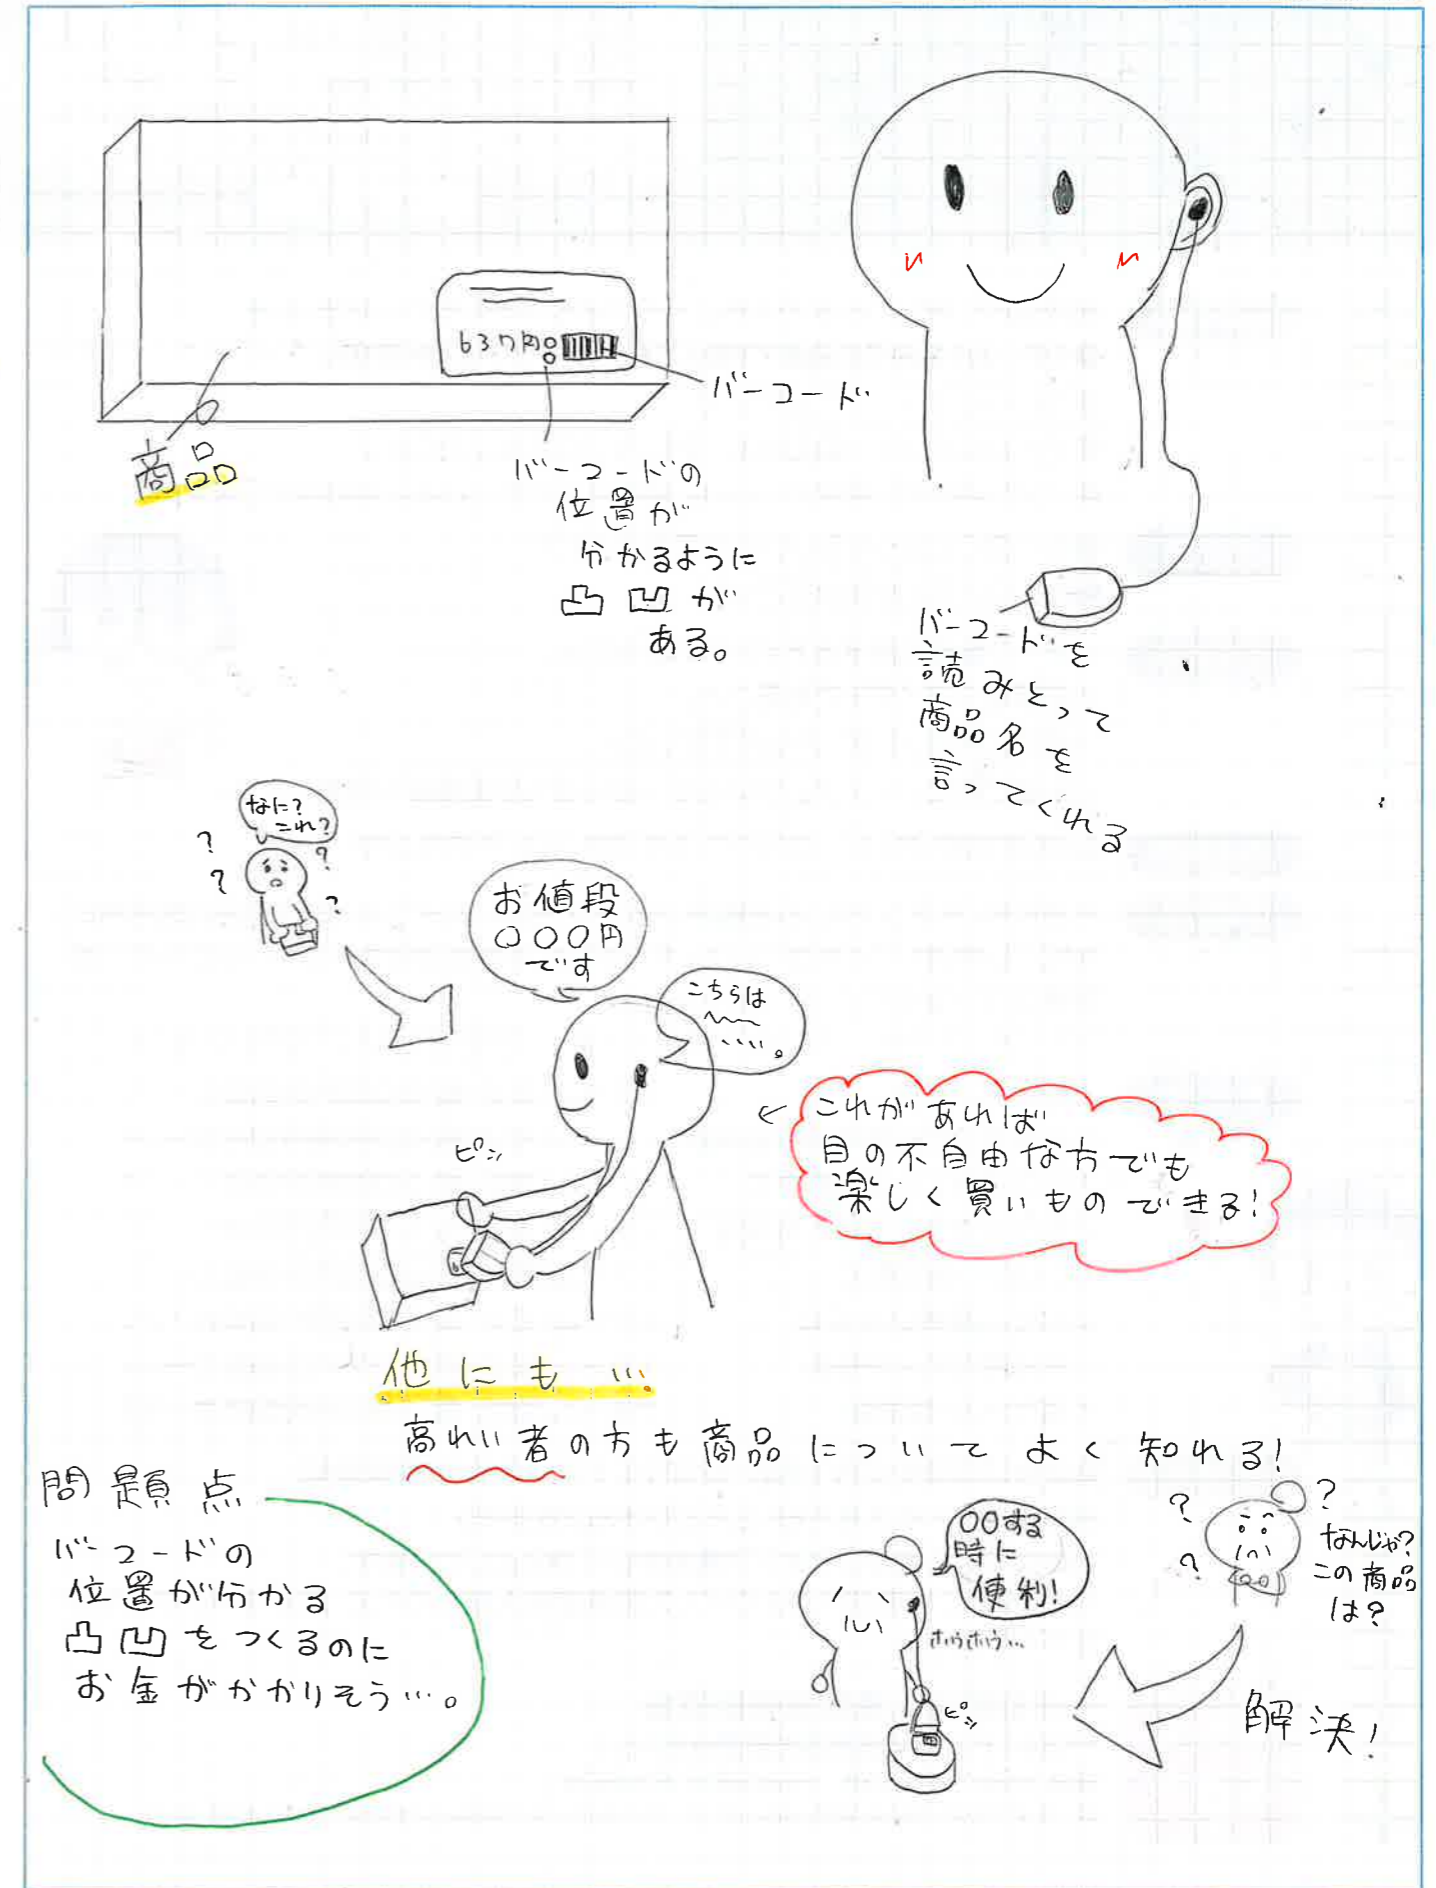 637円
バーコード
商品
バーコードの
位置が
分かるように
凸凹が
ある。
バーコードを
読みとって
商品名を
言ってくれる
なに?
これ?
?
?
?
?
お値段
○○○円
です
こちらは
〜〜
....。
ピッ
これがあれば
目の不自由な方でも
楽しく買いものできる!
他にも…
高れい者の方も商品についてよく知れる!
問題点
バーコードの
位置が分かる
凸凹をつくるのに
お金がかかりそう…。
○○する
時に
便利!
ホウホウ…
ピッ
?
?
?
なんじゃ?
この商品
は?
解決!